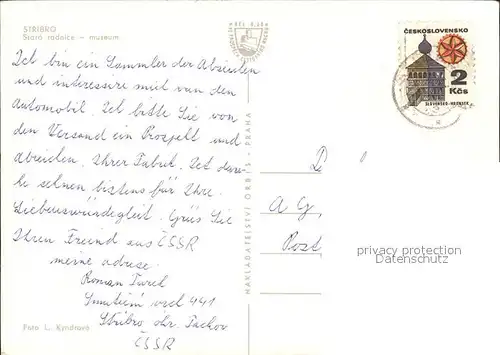 STŘÍBRO
Stará radnice - museum
Ich bin ein Sammler der Abzeichen
und interessire mich von den
Automobil. Ich bitte Sie von
den Versand ein Prospekt und
abzeichen, Ihrer Fabrik. Ich danke
schon bistens für Ihre
Liebenswürdigkeit. Grüs Sie
Ihren Freind aus ČSSR
meine adrese.
Roman Turek
ul 441
Stříbro okr. Tachov
ČSSR
Foto L. Kyndrová
NAKLADATELSTVÍ ORBIS - PRAHA
ČESKOSLOVENSKO
2
Kčs
SLOVENSKO-HRONSEK
D
A G
Post
privacy protection
Datenschutz